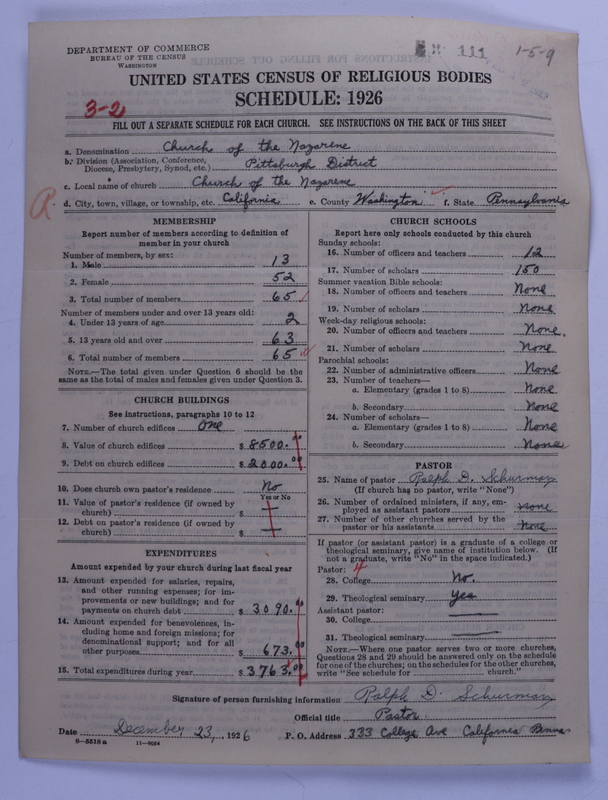 DEPARTMENT OF COMMERCE
BUREAU OF THE CENSUS
WASHINGTON
111
1-5-9
UNITED STATES CENSUS OF RELIGIOUS BODIES
SCHEDULE: 1926
3-2
FILL OUT A SEPARATE SCHEDULE FOR EACH CHURCH. SEE INSTRUCTIONS ON THE BACK OF THIS SHEET
a. Denomination Church of the Nazarene
b. Division (Association, Conference, Diocese, Presbytery, Synod, etc.) Pittsburgh District
c. Local name of church Church of the Nazarene
R.
d. City, town, village, or township, etc. California e. County Washington f. State Pennsylvania
MEMBERSHIP
Report number of members according to definition of
member in your church
Number of members, by sex:
1. Male 13
2. Female 52
3. Total number of members 65
Number of members under and over 13 years old:
4. Under 13 years of age 2
5. 13 years old and over 63
6. Total number of members 65
NOTE.—The total given under Question 6 should be
same as the total of males and females given under Question 3.
CHURCH BUILDINGS
See instructions, paragraphs 10 to 12
7. Number of church edifices One
8. Value of church edifices $ 8500.00
9. Debt on church edifices $ 2000.00
10. Does church own pastor's residence No
Yes or No
11. Value of pastor's residence (if owned by
church) $ —
12. Debt on pastor's residence (if owned by
church) $ —
EXPENDITURES
Amount expended by your church during last fiscal year
13. Amount expended for salaries, repairs,
and other running expenses; for im-
provements or new buildings; and for
payments on church debt $ 3090.00
14. Amount expended for benevolences, in-
cluding home and foreign missions; for
denominational support; and for all
other purposes $ 673.00
15. Total expenditures during year $ 3763.00
CHURCH SCHOOLS
Report here only schools conducted by this church
Sunday schools:
16. Number of officers and teachers 12
17. Number of scholars 150
Summer vacation Bible schools:
18. Number of officers and teachers None
19. Number of scholars None
Week-day religious schools:
20. Number of officers and teachers None.
21. Number of scholars None
Parochial schools:
22. Number of administrative officers None
23. Number of teachers—
a. Elementary (grades 1 to 8) None
b. Secondary None
24. Number of scholars—
a. Elementary (grades 1 to 8) None
b. Secondary None
PASTOR
25. Name of pastor Ralph D. Schurman
(If church has no pastor, write "None")
26. Number of ordained ministers, if any, em-
ployed as assistant pastors none
27. Number of other churches served by the
pastor or his assistants none
If pastor (or assistant pastor) is a graduate of a college or
theological seminary, give name of institution below. (If
not a graduate, write "No" in the space indicated.)
Pastor: 4
28. College No.
29. Theological seminary Yes
Assistant pastor:
30. College —
31. Theological seminary —
NOTE.—Where one pastor serves two or more churches,
Questions 28 and 29 should be answered only on the schedule
for one of the churches; on the schedules for the other churches,
write "See schedule for church."
Signature of person furnishing information Ralph D. Schurman
Official title Pastor
Date December 23, 1926 P. O. Address 333 College Ave California Penna
6—5518 a 11—9054